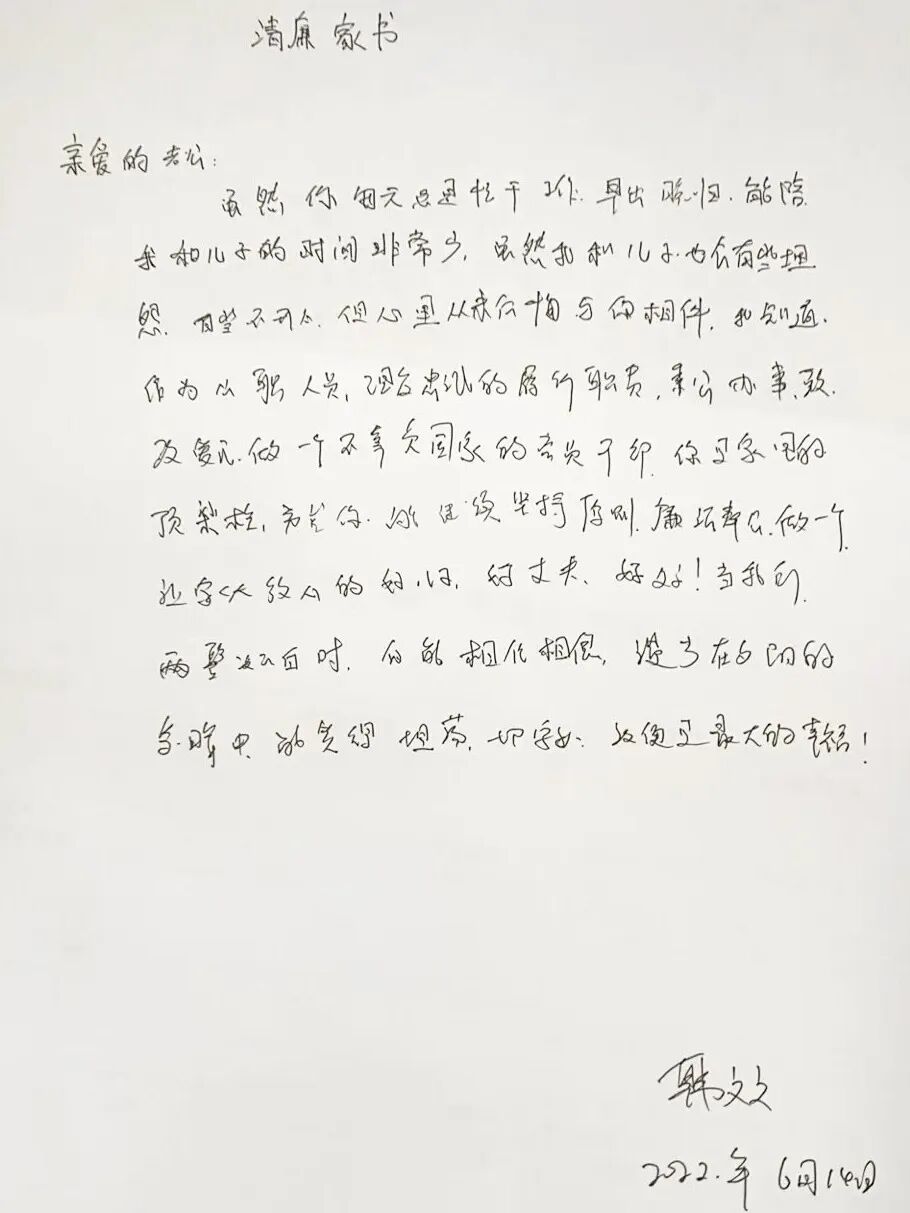 清廉家书
亲爱的老公:
虽然你每天总是忙于工作.早出晚归.能陪
我和儿子的时间非常少,虽然我和儿子也会有些埋
怨.但心里从未后悔与你相伴,我知道.
作为公职人员,理应忠诚的履行职责,秉公办事,
做一个不辜负国家的党员干部.你是家里的
顶梁柱,希望你.能继续坚持原则.廉洁奉公.做一个
的好儿子,好丈夫、好父亲!当我们
两鬓斑白时.仍能相依相偎,漫步在夕阳的
余晖中,坦荡,便是最大的幸福!
韩文文
2022.年6月14日